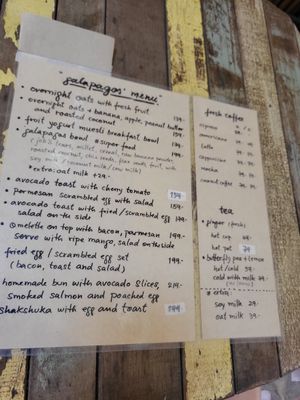 "galapagos' menu"
• overnight oats with fresh fruit 139.-
• overnight oats + banana, apple, peanut butter
and roasted coconut 159.-
• fruit yogurt muesli breakfast bowl 139.-
• galapagos bowl #super food 199.-
soy milk / coconut milk / cow milk)
• extra: oat milk +29.-
• avocado toast with cherry tomato 159.-
• parmesan scrambled egg with salad 159.-
• avocado toast with fried/scrambled egg
salad on the side 179.-
• omelette on top with bacon, parmesan 199.-
serve with ripe mango, salad on the side
fried egg / scrambled egg set 199.-
(bacon, toast and salad)
homemade bun with avocado slices, 219.-
smoked salmon and poached egg
shakshuka with egg and toast 199.-
fresh coffee
espresso
americano
latte
cappuccino
mocha
coconut coffee
tea
• ginger (fresh)
hot cup
hot pot 79
• butterfly pea + lemon
hot/cold 59.-
cold with milk 79.-
* extra:
soy milk 29.-
oat milk 39.-